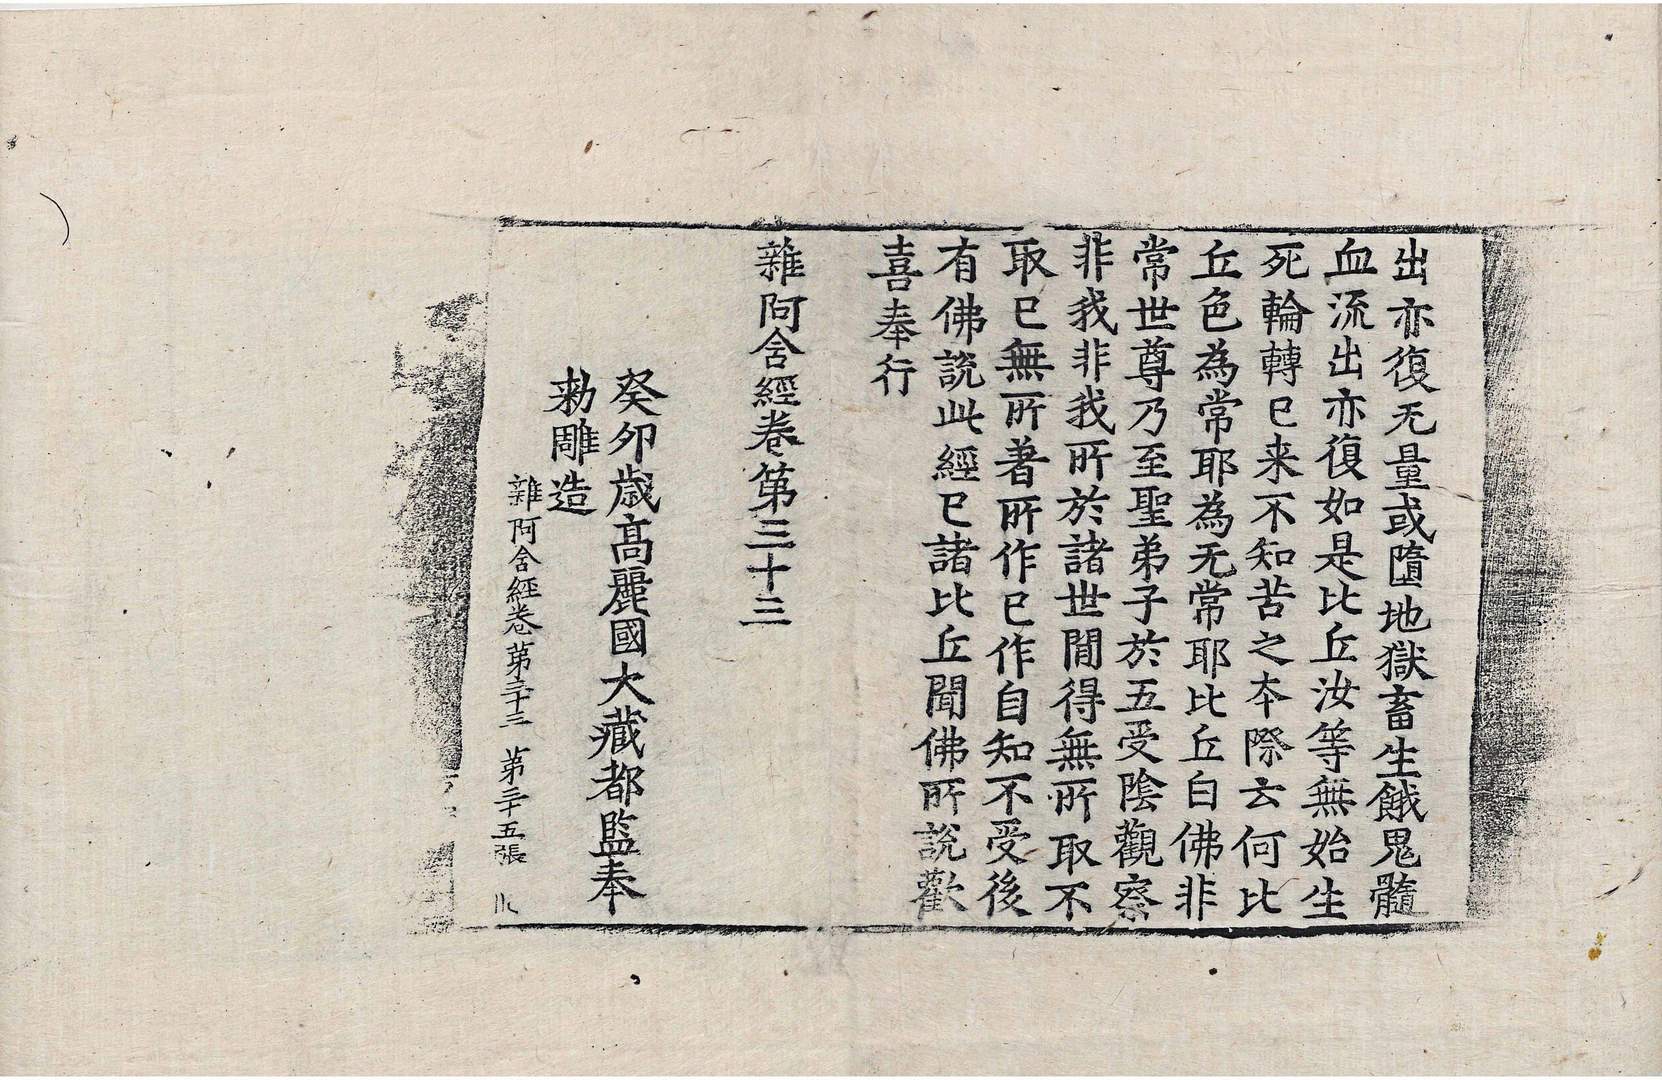 出亦復无量或墮地獄畜生餓鬼髓
血流出亦復如是比丘汝等無始生
死輪轉已来不知苦之本際云何比
丘色為常耶為无常耶比丘白佛非
常世尊乃至聖弟子於五受陰觀察
非我非我所於諸世閒得無所取不
取已無所著所作已作自知不受後
有佛說此經已諸比丘聞佛所說歡
喜奉行
雜阿含經卷第三十三
癸卯歲高麗國大藏都監奉
勅雕造
雜阿含經卷第三十三 第二十五張